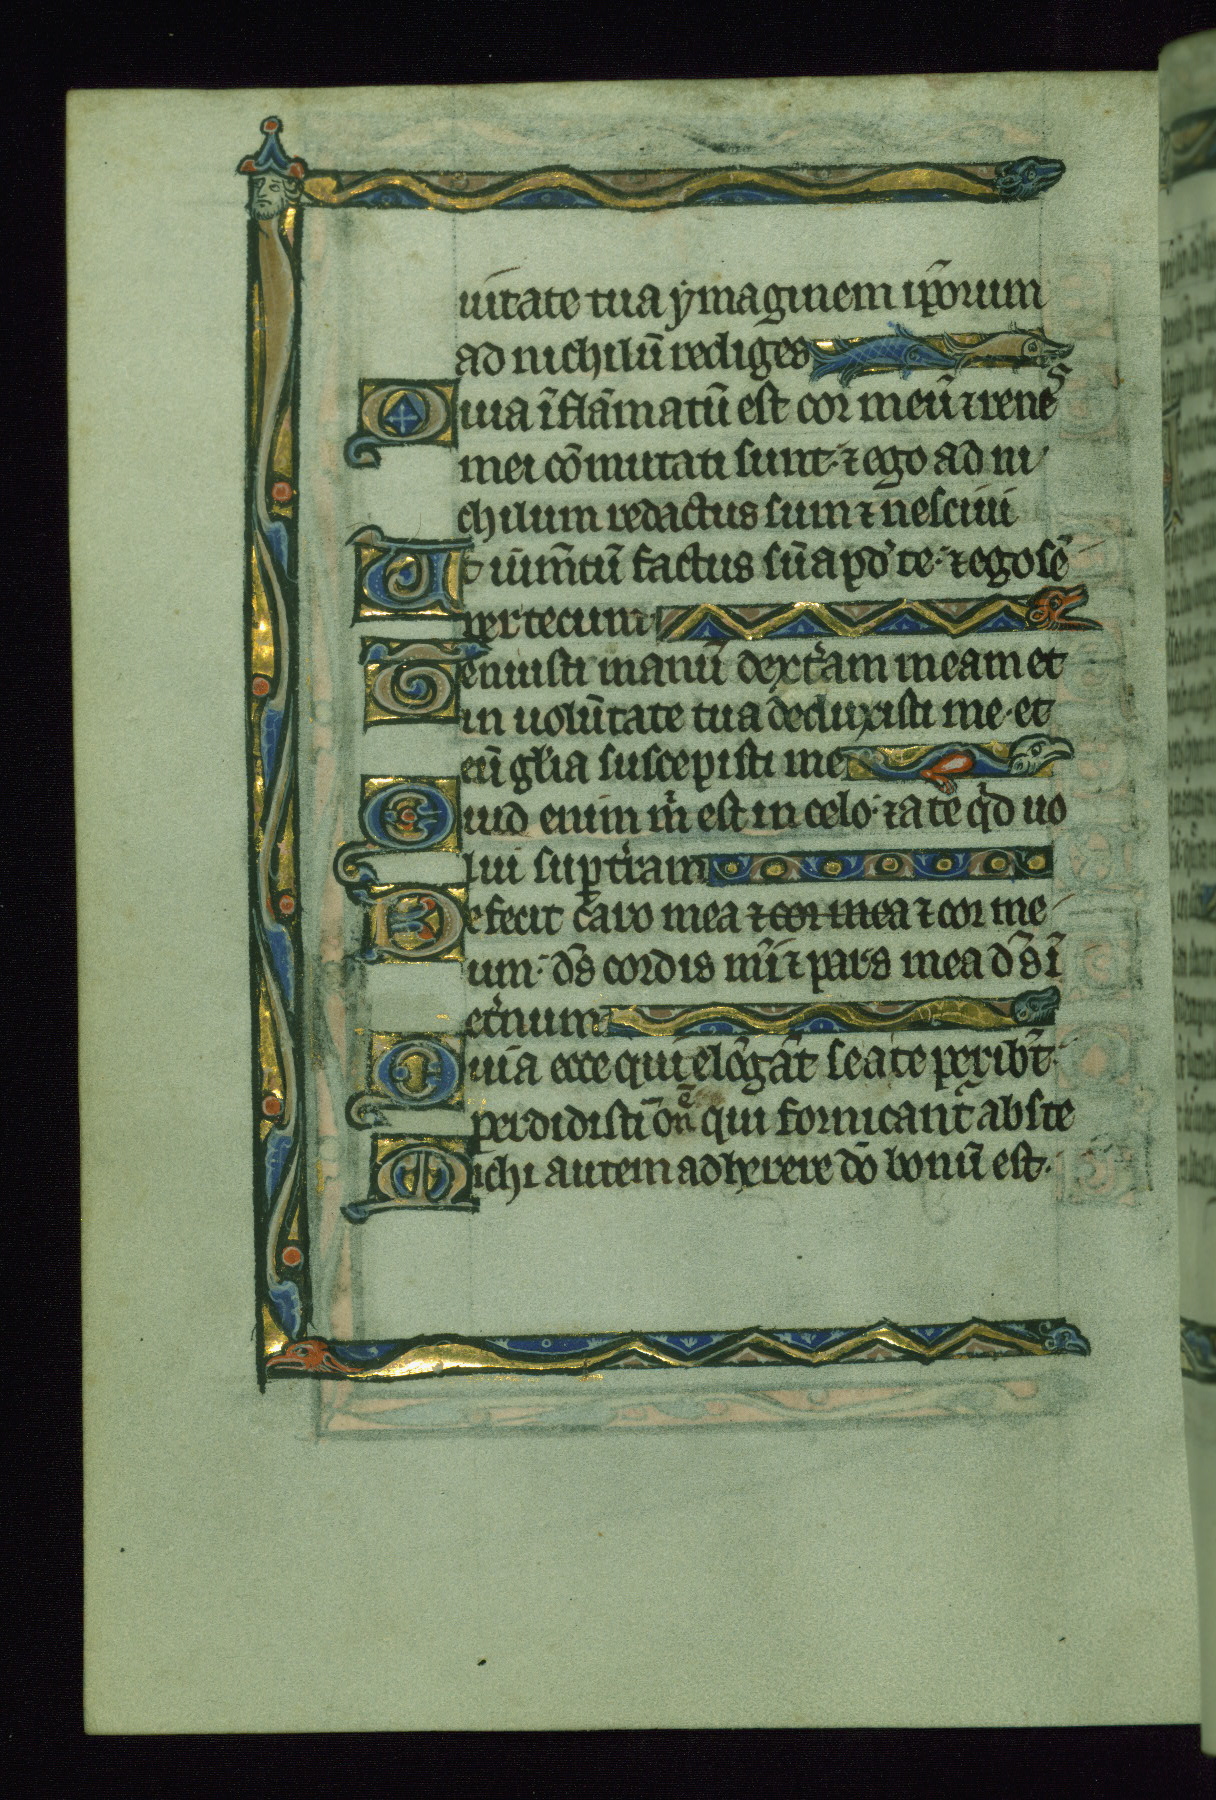 uitate tua ẏmaginem ip̃orum
ad nichilũ rediges
Quia ĩflãmatũ est cor meũ ⁊ renes
mei cõmutati sunt· ⁊ ego ad ni
chilum redactus sum ⁊ nesciui
Ut ium̃tũ factus sũ apd̾ te· ⁊ ego sẽ
per tecum
Tenuisti manũ dext̾am meam et
in uolũtate tua deduxisti me· et
cũ gl̃ia suscepisti me
Quid enim m̾ est in celo· ⁊ a te qͥd uo
lui sup̱ t̾ram
Defecit caro mea ⁊ cor mea ⁊ cor me
um· ds̃ cordis mi̾ ⁊ pars mea ds̃ ĩ
et̾num
Quia ecce qui elõgãt se a te peribt̃·
perdidisti om̃ẽ qui fornicant̾ abs te
Michi autem adherere dõ bonũ est·